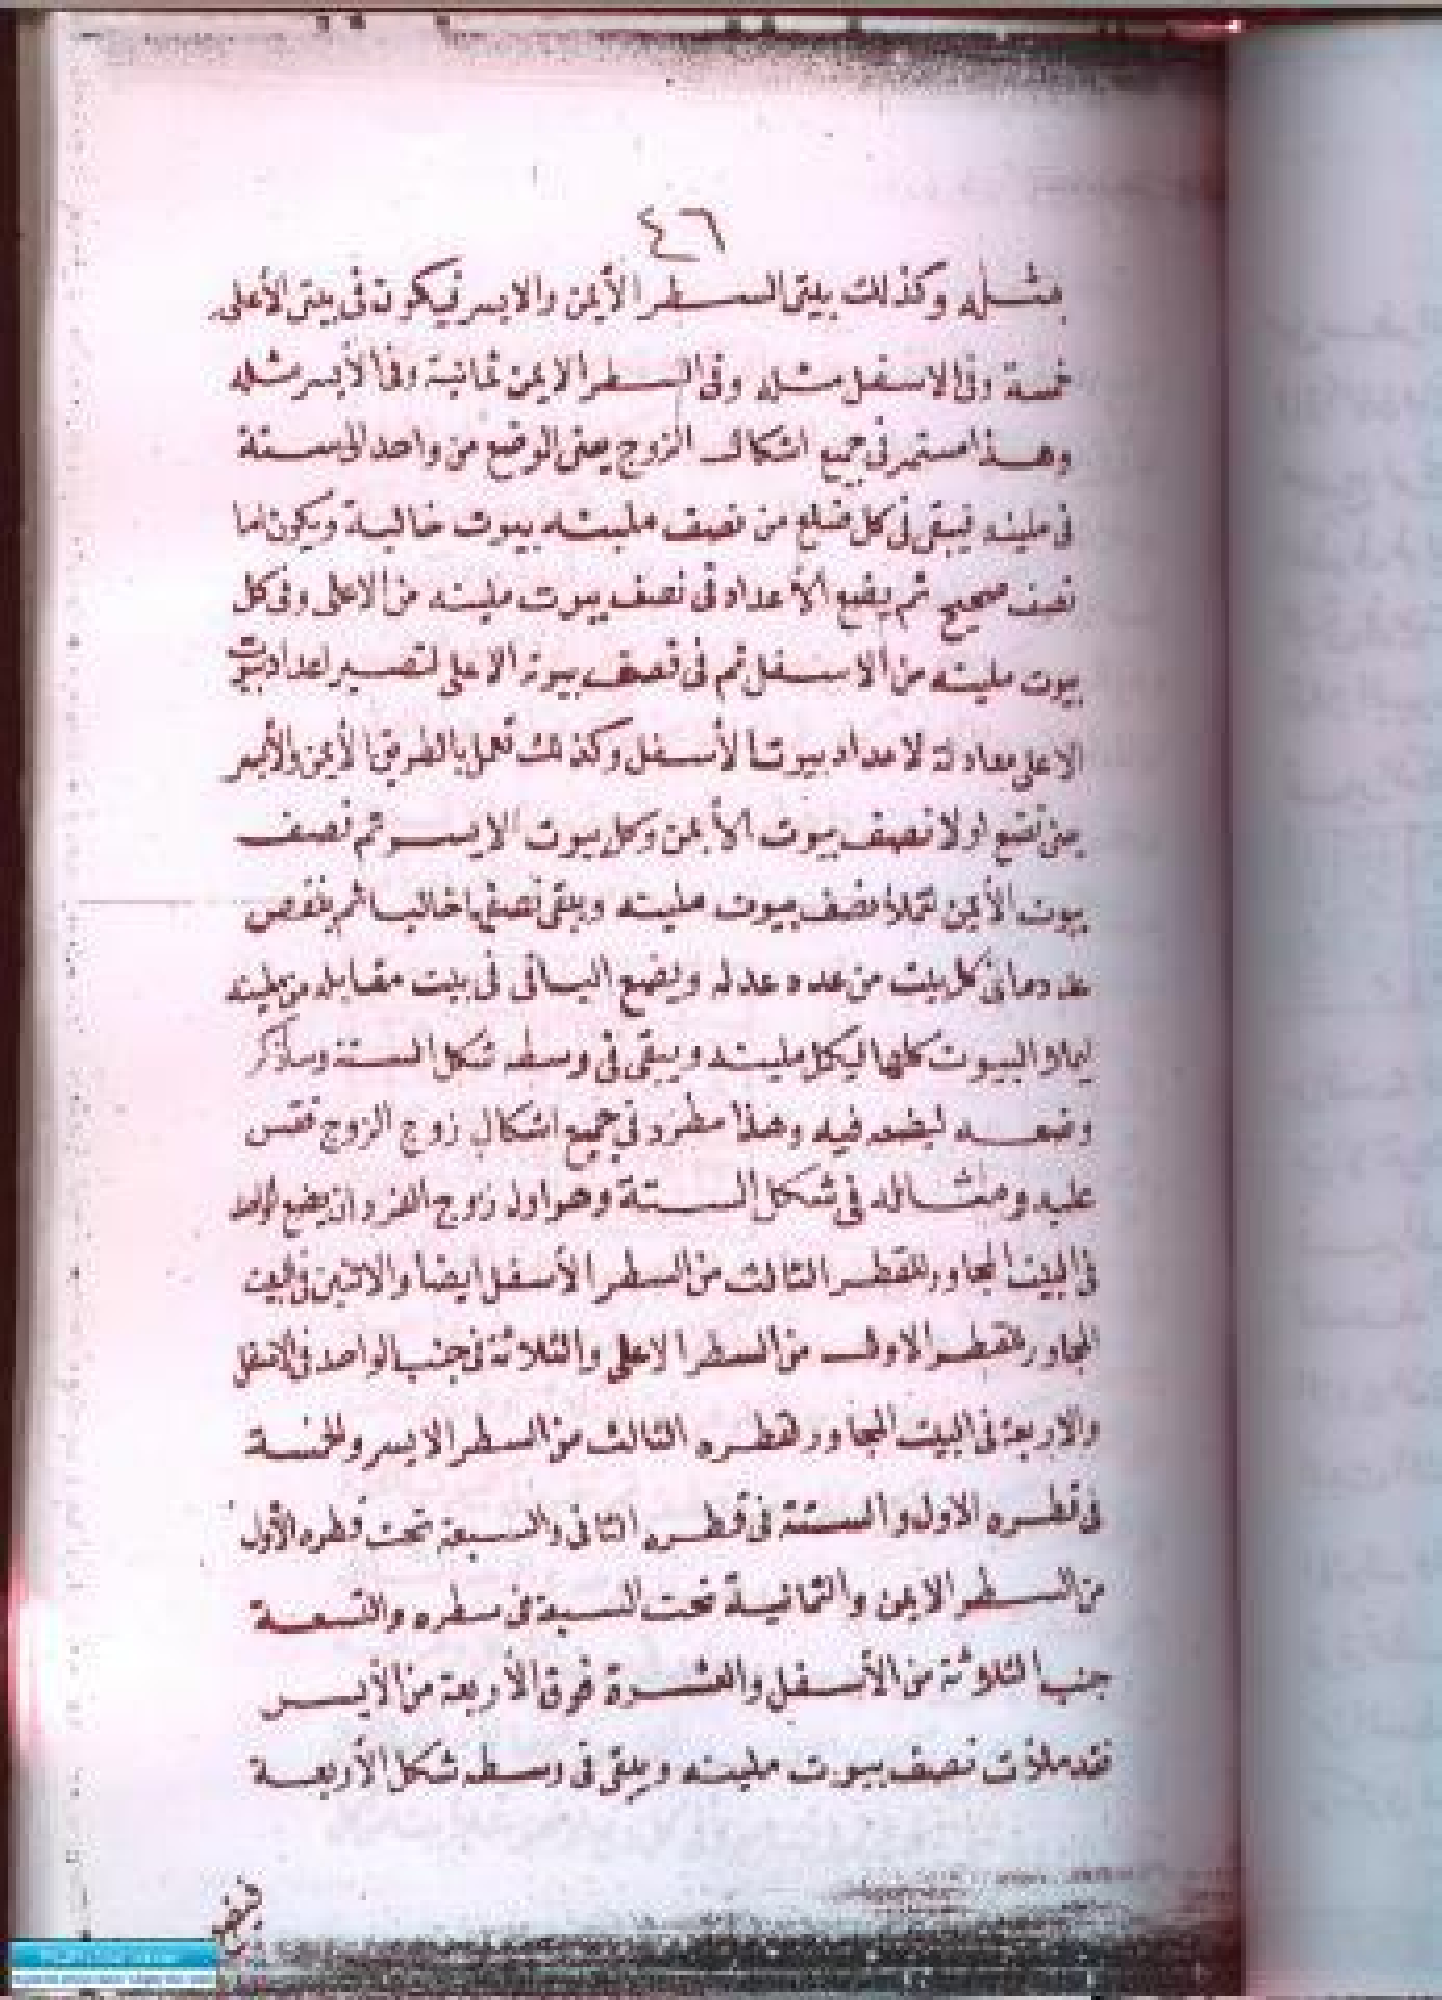 ٤٦
مثله وكذلك بيتى السطر الأيمن والايسر فيكون فى بيتى الأعلى
خمسة وفى الاسفل مثله وفى السطر الايمن ثمانية وفى الأيسر مثله
وهذا مستمر فى جميع اشكال الزوج يعنى الوضع من واحد الى ستة
فى فيبقى فى كل ضلع من نصف بيوت خالية ويكون لها
نصف صحيح ثم يضع الأعداد فى نصف بيوت من الاعلى وفى كل
بيوت من الاسفل ثم فى نصف بيوت الاعلى لتصير اعداد بيوت
الاعلى معادلة لاعداد بيوت الأسفل وكذلك تعمل الأيمن والأيسر
يعنى تضع اولا نصف بيوت الأيمن وكل بيوت الايسر ثم نصف
بيوت الأيمن نصف بيوت ويبقى نصفها خاليا ثم
عدد ما فى كل بيت من عدد عدله ويضع الباقى فى بيت مقابله من
البيوت كلها ويبقى فى وسطه شكل الستة وسأذكر
وضعه ليضعه فيه وهذا مطرد فى جميع اشكال زوج الزوج فقس
عليه ومثاله فى شكل الستة وهو اول زوج الفرد ان يضع الواحد
فى البيت المجاور للقطر الثالث من السطر الأسفل ايضا والاثنين فى البيت
المجاور للقطر الاول من السطر الاعلى والثلاثة فى جنب الواحد فى الاسفل
والاربعة فى البيت المجاور لقطره الثالث من السطر الايسر والخمسة
فى قطره الاول والستة فى قطره الثانى والسبعة تحت قطره الأول
من السطر الايمن والثمانية تحت السبعة فى سطره والتسعة
جنب الثلاثة من الأسفل والعشرة فوق الأربعة من الأيسر
فقد ملأت نصف بيوت ويبقى فى وسطه شكل الأربعة